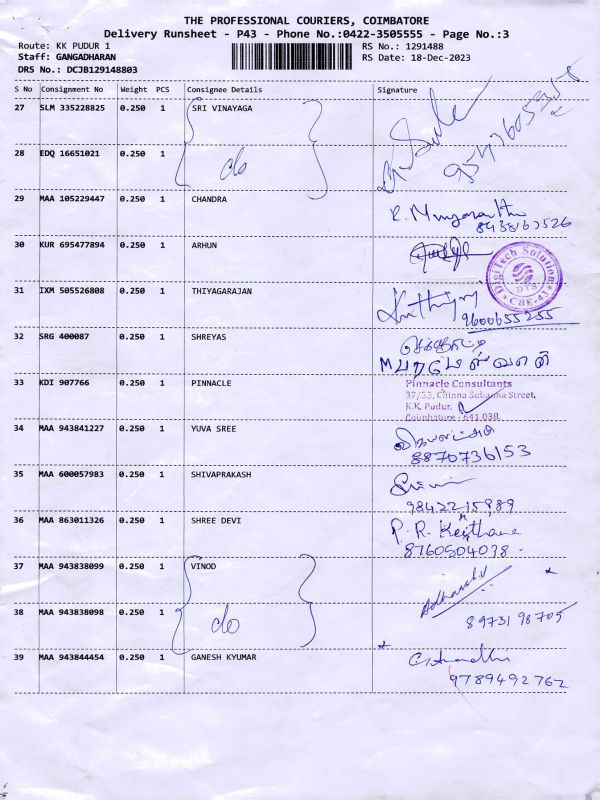 THE PROFESSIONAL COURIERS, COIMBATORE
Delivery Runsheet - P43 - Phone No.:0422-3505555 - Page No.:3
Route: KK PUDUR 1 RS No.: 1291488
Staff: GANGADHARAN RS Date: 18-Dec-2023
DRS No.: DCJB129148803
S No Consignment No Weight PCS Consignee Details Signature
27 SLM 335228825 0.250 1 SRI VINAYAGA
28 EDQ 16651021 0.250 1 do
29 MAA 105229447 0.250 1 CHANDRA
30 KUR 695477894 0.250 1 ARHUN
DigiTech Solution
DTS
CBE-43
31 IXM 505526808 0.250 1 THIYAGARAJAN
9600655255
32 SRG 400087 0.250 1 SHREYAS
33 KDI 907766 0.250 1 PINNACLE
Pinnacle Consultants
37/33, Chinna Subanna Street,
K.K. Pudur,
Coimbatore - 641 038.
34 MAA 943841227 0.250 1 YUVA SREE
8870736153
35 MAA 600057983 0.250 1 SHIVAPRAKASH
9842215989
36 MAA 863011326 0.250 1 SHREE DEVI P. R. Keerthana
8760504038
37 MAA 943838099 0.250 1 VINOD
38 MAA 943838098 0.250 1 do
8973198705
39 MAA 943844454 0.250 1 GANESH KYUMAR
9789492762